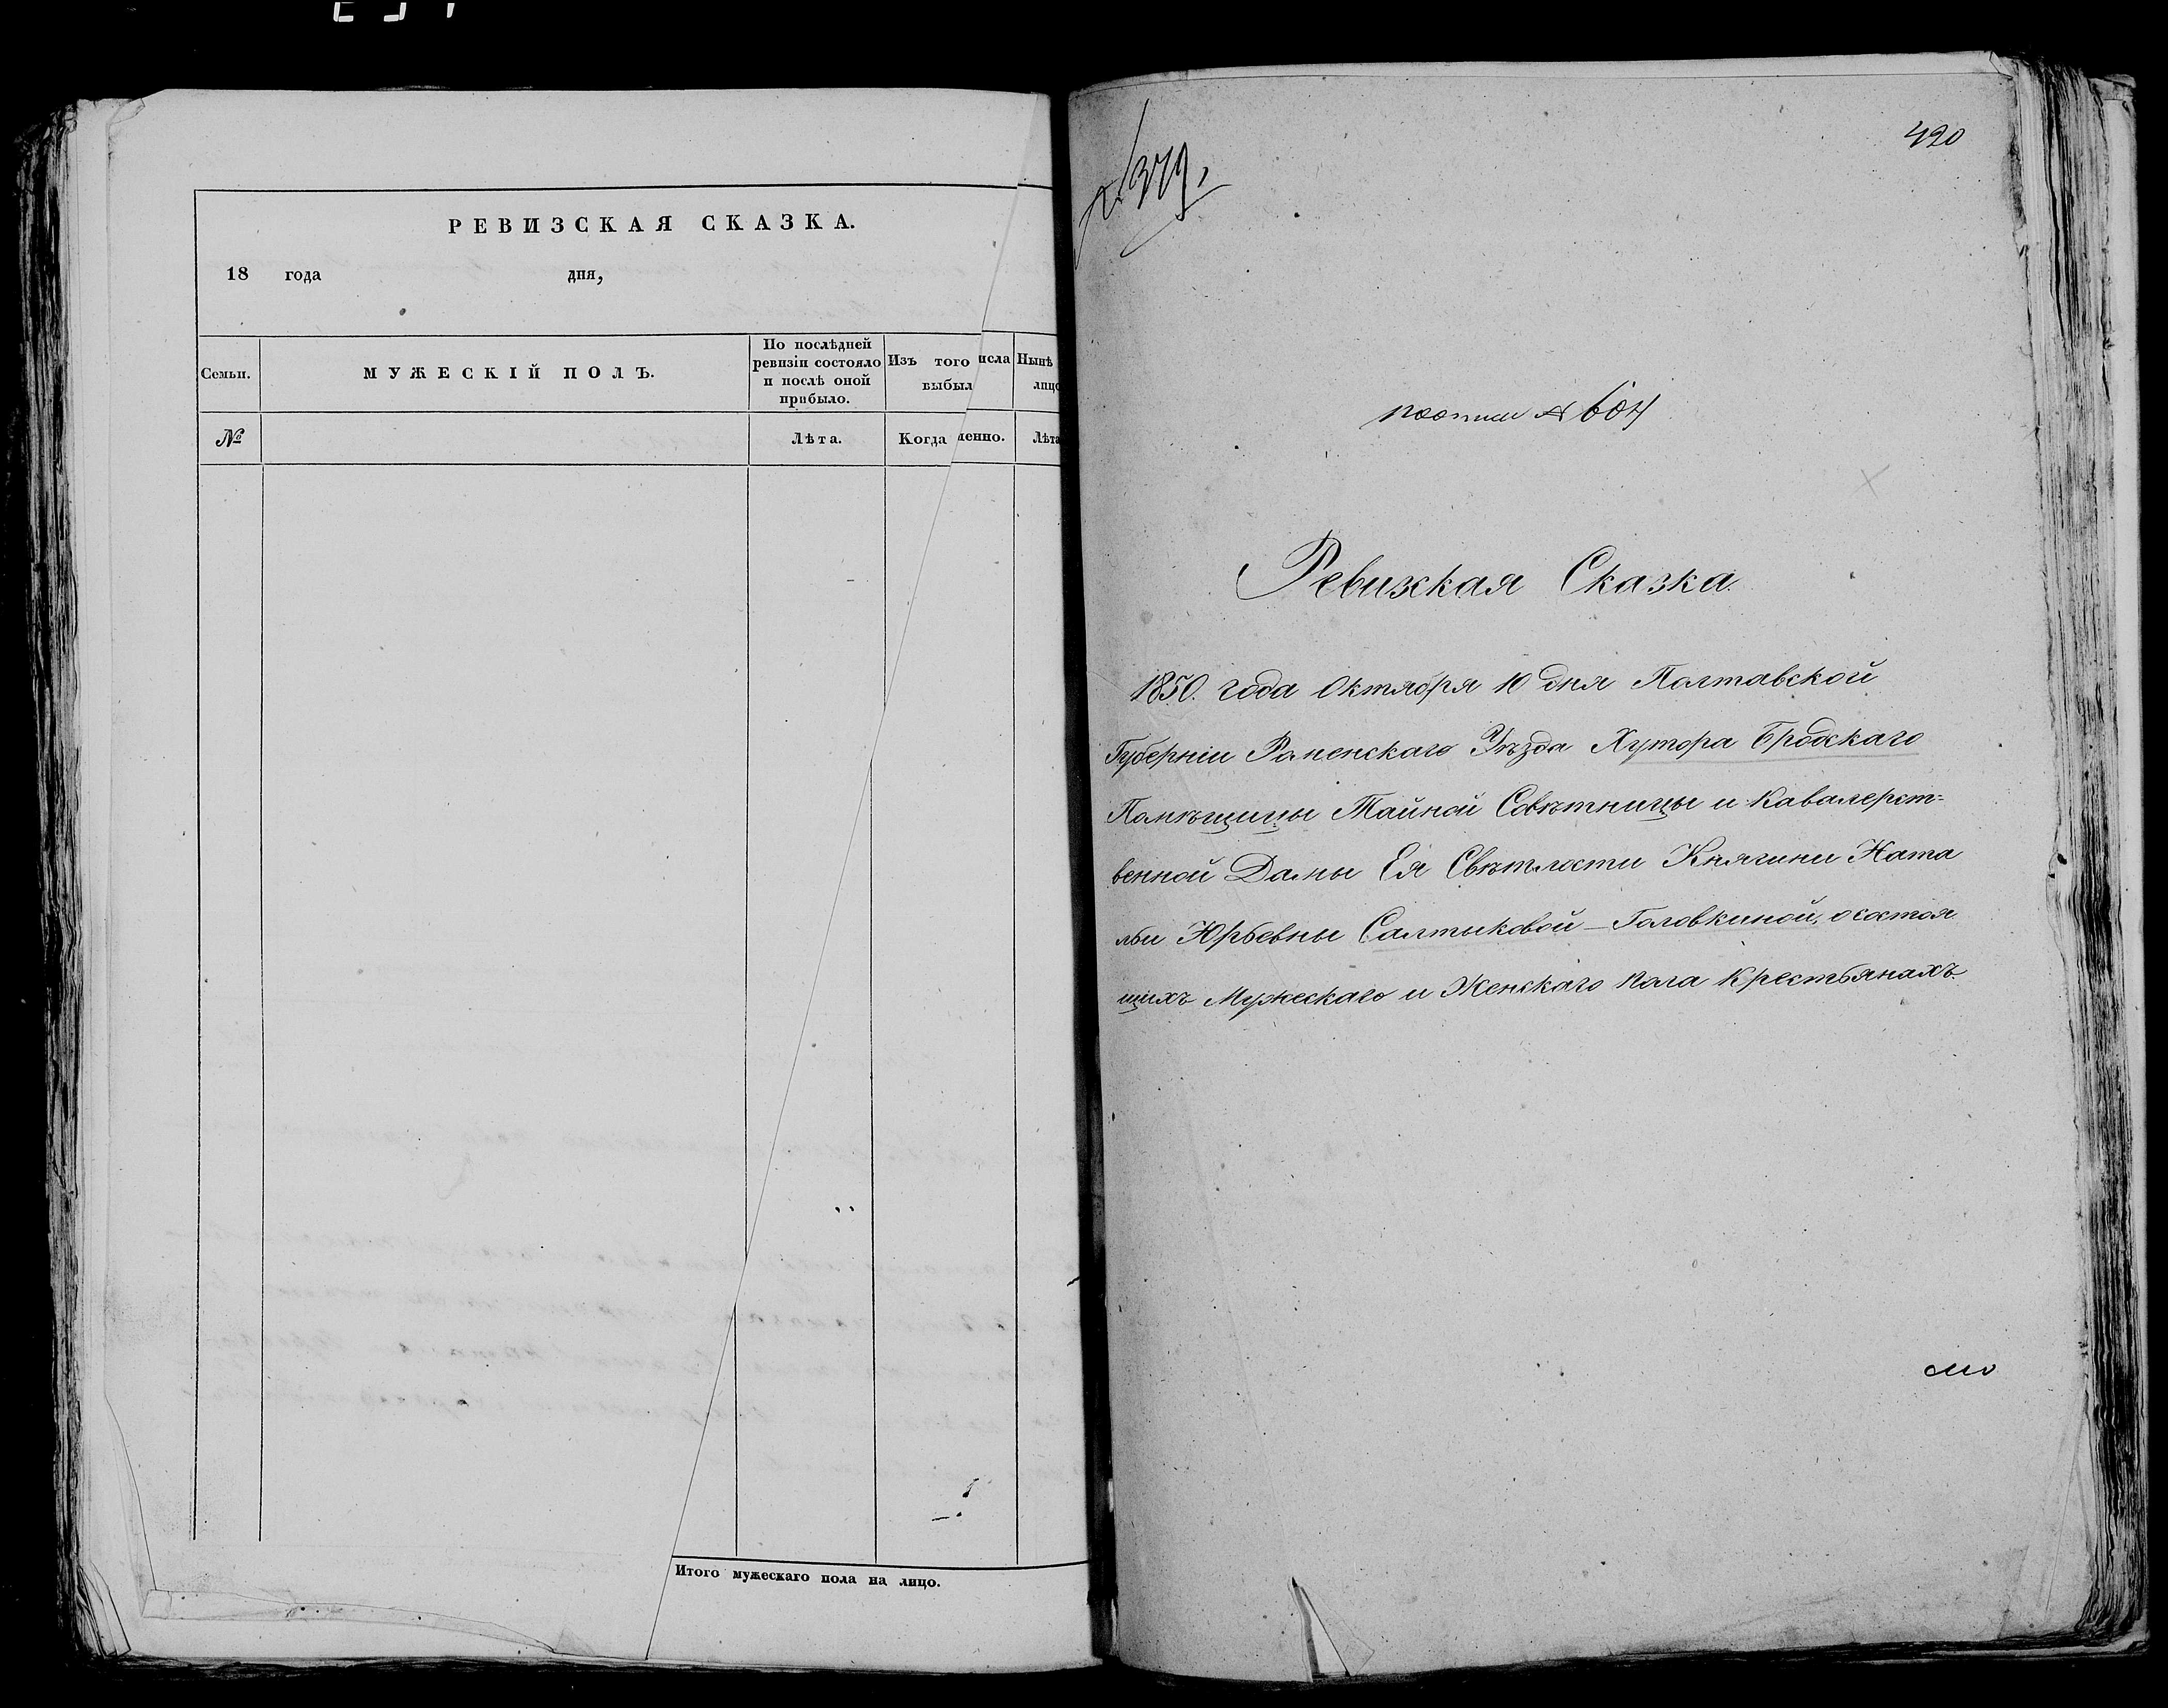 РЕВИЗСКАЯ СКАЗКА.
18 года дня,
Семьи.
МУЖЕСКІЙ ПОЛЪ.
По послѣдней
ревизіи состояло
и послѣ оной
прибыло.
Изъ того исла
выбыл
Нынѣ
лицо
№
Лѣта.
Когда менно.
Лѣта
Итого мужескаго пола на лицо.
420
№ 379,
№ 604
Ревизская Сказка.
1850. года Октября 10 дня Полтавской
Губерніи Роменскаго Уѣзда Хутора Бродскаго
Помѣщицы Тайной Совѣтницы и Кавалерст=
венной Дамы Ея Свѣтлости Княгини Ната
льи Юрьевны Салтыковой-Головкиной, о состоя
щихъ Мужескаго и Женскаго пола Крестьянахъ.